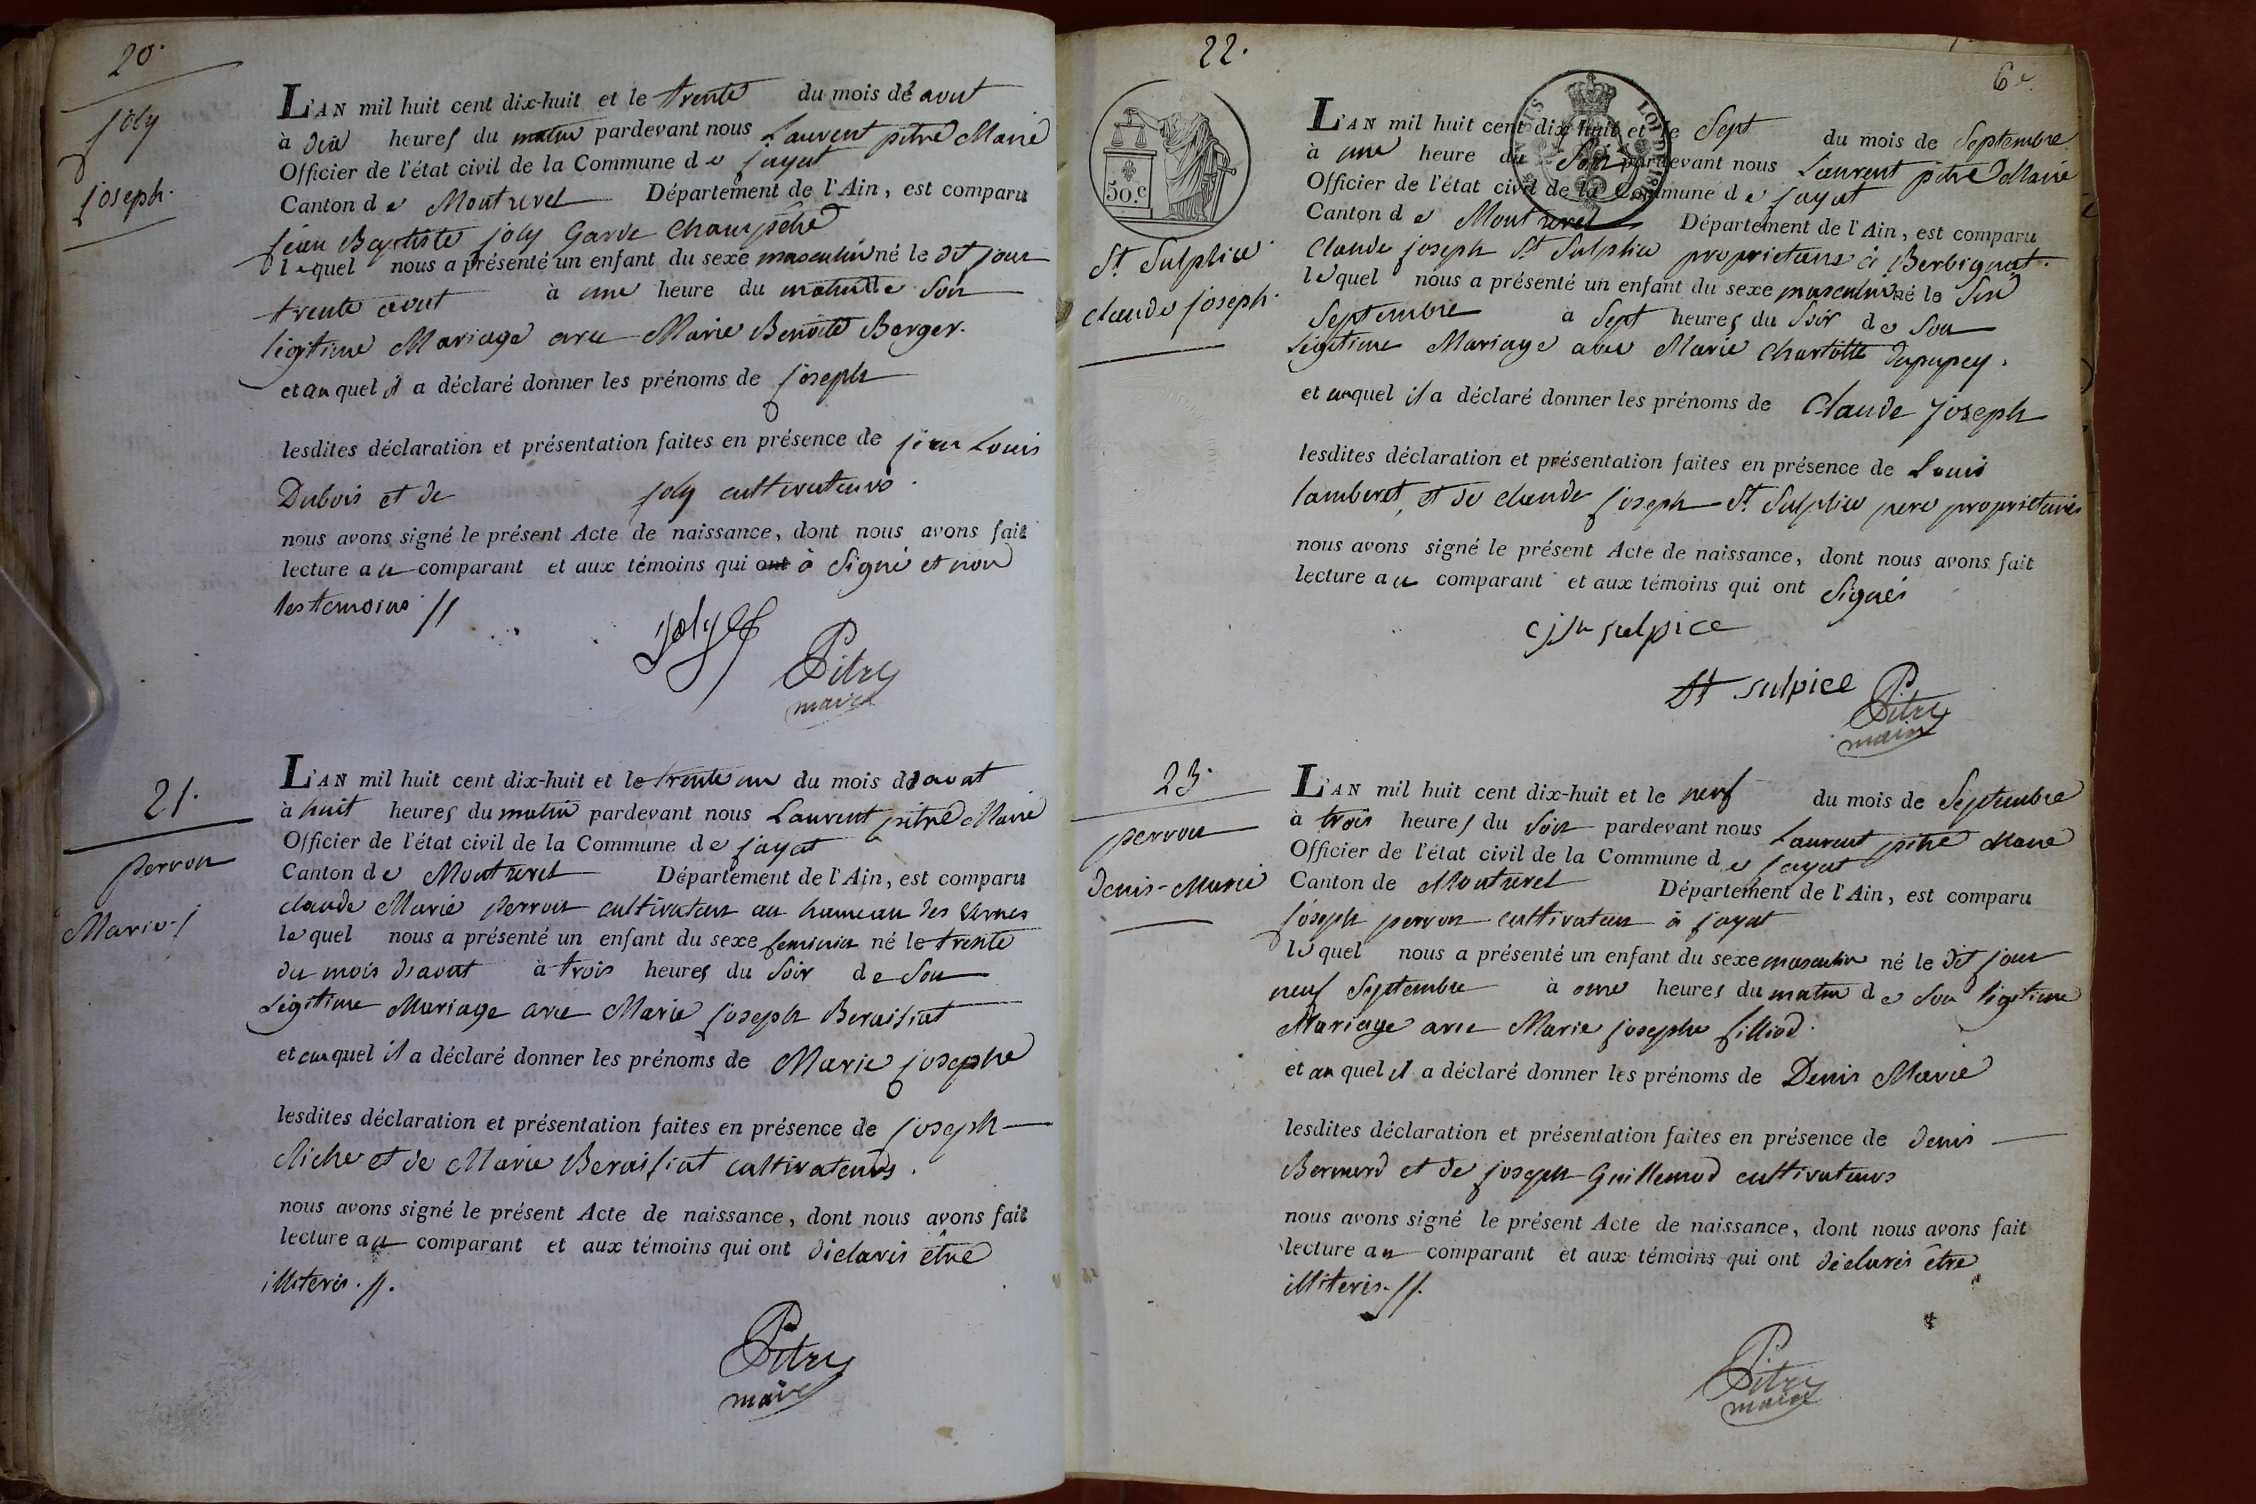 20.
joly
joseph.
L'AN mil huit cent dix-huit et le trente du mois de aout
à dix heures du matin pardevant nous Laurent pitre Maire
Officier de l'état civil de la Commune de jayat
Canton de Montrevel Département de l'Ain, est comparu
jean Baptiste joly Garde Champêtre
lequel nous a présenté un enfant du sexe masculin né le dit jour
trente aout à une heure du matin de Son
légitime Mariage avec Marie Benoite Berger.
et auquel il a déclaré donner les prénoms de joseph
lesdites déclaration et présentation faites en présence de jean Louis
Dubois et de joly cultivateurs.
nous avons signé le présent Acte de naissance, dont nous avons fait
lecture au comparant et aux témoins qui ont à Signé et non
les temoins //
joly
Pitre
maire
21.
perron
Marie-j
L'AN mil huit cent dix-huit et le trente un du mois d'aout
à huit heures du matin pardevant nous Laurent pitre Maire
Officier de l'état civil de la Commune de jayat
Canton de Montrevel Département de l'Ain, est comparu
claude Marie perron cultivateur au hameau des Vernes
lequel nous a présenté un enfant du sexe feminin né le trente
du mois d'aout à trois heures du Soir de Son
Légitime Mariage avec Marie joseph Beraisiat
et auquel il a déclaré donner les prénoms de Marie josephe
lesdites déclaration et présentation faites en présence de joseph
et de Marie Beraisiat cultivateurs.
nous avons signé le présent Acte de naissance, dont nous avons fait
lecture au comparant et aux témoins qui ont déclarés être
illiteris. //.
Pitre
maire
22.
6e
50.c
LOI DE 1816
St Sulpice
claude joseph.
L'AN mil huit cent dix-huit et le Sept du mois de Septembre
à une heure du Soir pardevant nous Laurent pitre Maire
Officier de l'état civil de la Commune de jayat
Canton de Montrevel Département de l'Ain, est comparu
Claude joseph St Sulpice proprietaire à Berbignat.
lequel nous a présenté un enfant du sexe masculin né le Six
Septembre à Sept heures du Soir de Son
Légitime Mariage avec Marie Charlotte dupupey.
et auquel il a déclaré donner les prénoms de Claude joseph
lesdites déclaration et présentation faites en présence de Louis
lamberet, et de claude joseph St Sulpice pere proprietaires
nous avons signé le présent Acte de naissance, dont nous avons fait
lecture au comparant et aux témoins qui ont Signés
sulpice
St sulpice
Pitre
maire
23.
perron
Denis-Marie
L'AN mil huit cent dix-huit et le neuf du mois de Septembre
à trois heures du Soir pardevant nous Laurent pitre Maire
Officier de l'état civil de la Commune de jayat
Canton de Montrevel Département de l'Ain, est comparu
joseph perron cultivateur à jayat
lequel nous a présenté un enfant du sexe masculin né le dit jour
neuf Septembre à onze heures du matin de Son légitime
Mariage avec Marie josephe filliod.
et auquel il a déclaré donner les prénoms de Denis Marie
lesdites déclaration et présentation faites en présence de denis
Bernard et de joseph Guillemod cultivateurs
nous avons signé le présent Acte de naissance, dont nous avons fait
lecture au comparant et aux témoins qui ont déclarés être
illiteris. //.
Pitre
maire